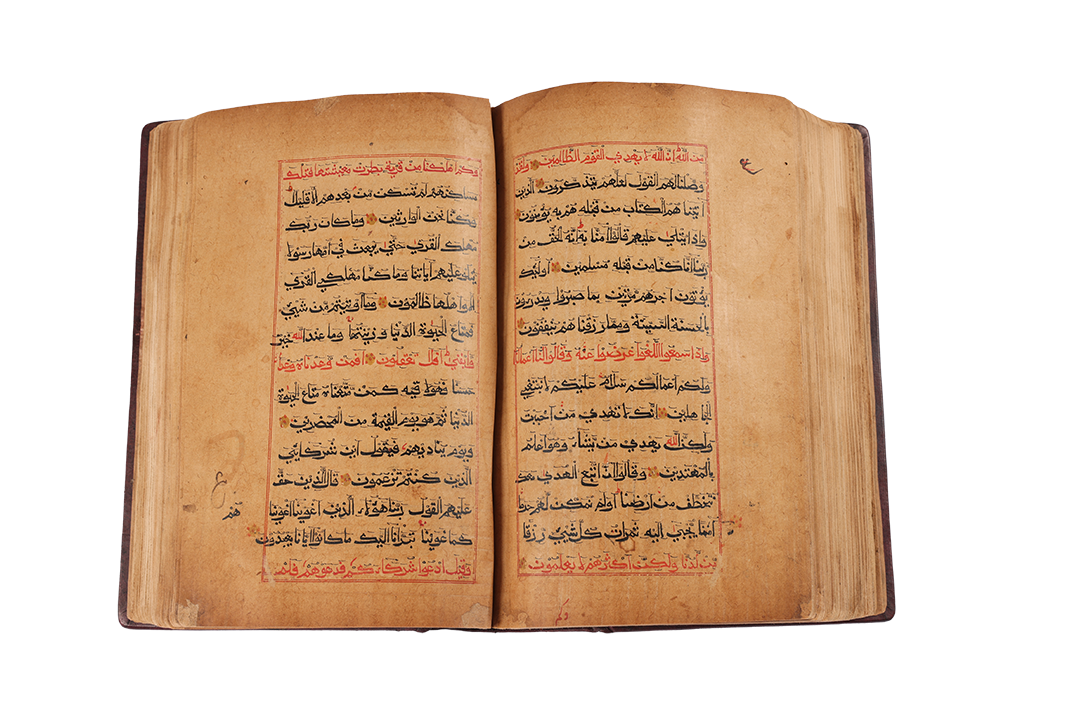 من الله ان الله لا يهدي القوم الظالمين ولقد
وصلنا لهم القول لعلهم يتذكرون الذين
اتينا هم الكتاب من قبله هم به يؤمنون
واذا يتلي عليهم قالوا امنا به انه الحق من
ربنا انا كنا من قبله مسلمين اوليك
يؤتون اجرهم مرتين بما صبروا ويدرون
بالحسنة السيئة ومما رزقنا هم ينفقون
واذا سمعوا اللغوا عرضوا عنه وقالوا لنا اعمالنا
ولكم اعمالكم سلام عليكم لا نبتغي
الجا هلين انك لا تهدي من احببت
ولكن الله يهدي من يشاء وهو اعلم
بالمهتدين وقالوا ان نتبع الهدي معك
نتخطف من ارضنا اولم نمكن لهم حرما
امنا يجبي اليه ثمرات كل شيء رزقا
من لدنا ولكن اكثرهم لا يعلمون
وكم
وكم اهلكنا من قرية بطرت معيشتها فتلك
مساكنهم لم تسكن من بعدهم الا قليلا
وكنا نحن الوارثين وما كان ربك
مهلك القري حتي يبعث في امها رسولا
يتلو عليهم اياتنا وما كنا مهلكي القري
الا واهلها ظالمون وما اوتيتم من شيء
فمتاع الحيوة الدنيا وزينتها وما عند الله خير
وابقي افلا تعقلون افمن وعدناه وعدا
حسنا فهو لا قيه كمن متعناه متاع الحيوة
الدنيا ثم هو يوم القيمة من المحضرين
ويوم يناديهم فيقول اين شركايي
الذين كنتم تزعمون قال الذين حق
عليهم القول ربنا هؤلاء الذين اغوينا اغوينا
هم
كما غوينا تبرانا اليك ما كانوا ايانا يعبدون
وقيل ادعوا شركاءكم فدعوهم فلم